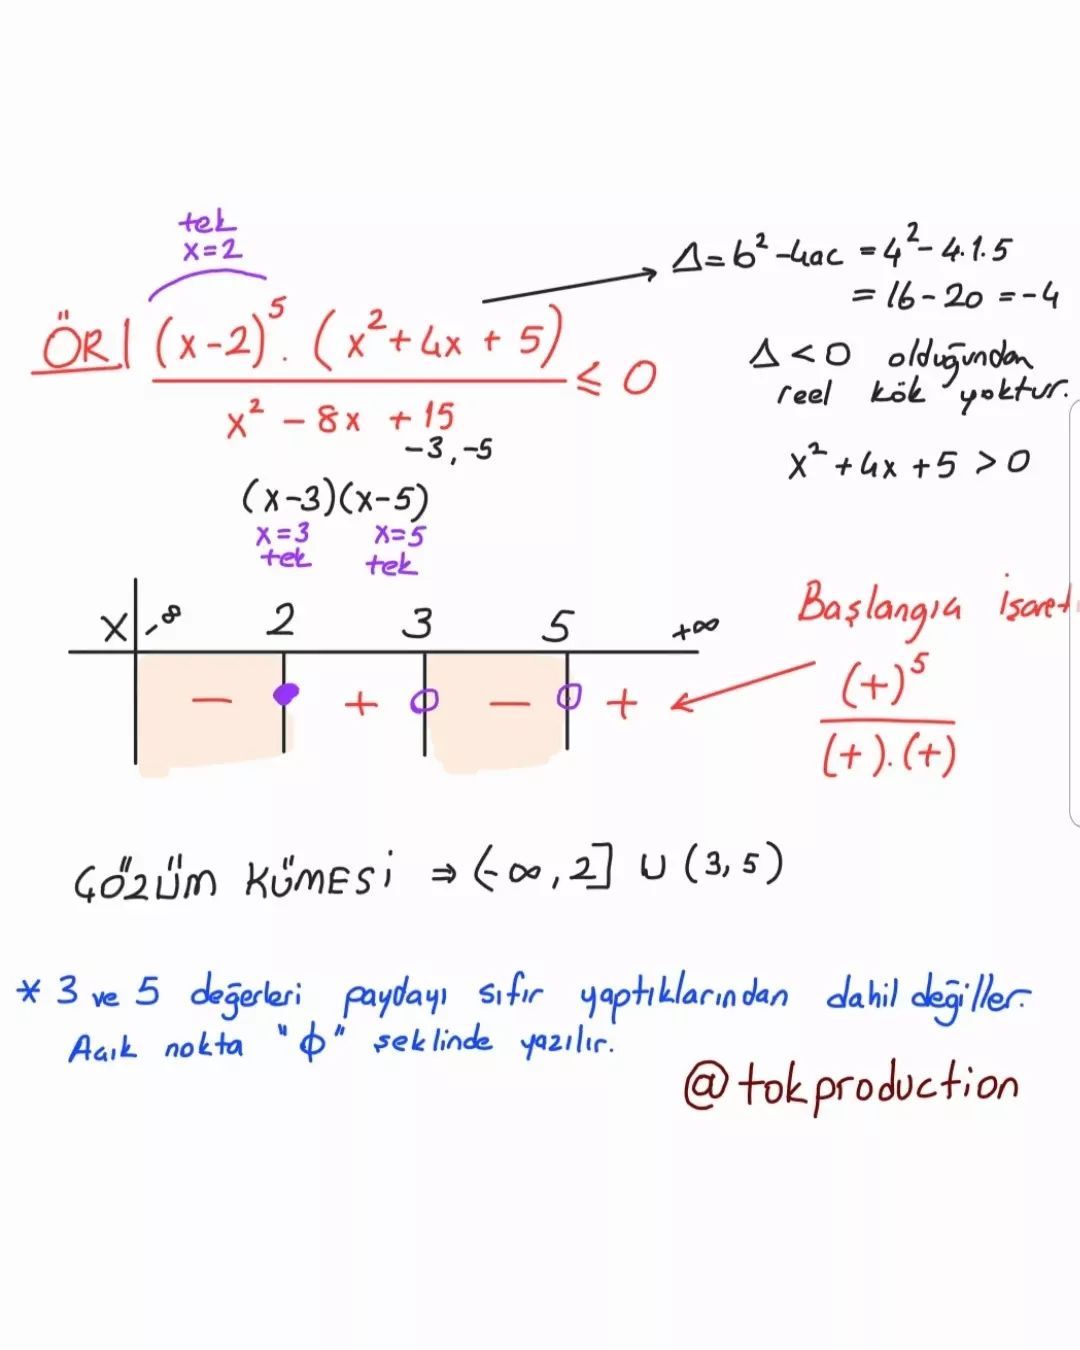 tek
x=2
ÖR| (x-2)⁵.(x²+4x+5)
≤ 0
x² - 8x + 15
-3,-5
(x-3)(x-5)
x=3 x=5
tek tek
Δ=b²-4ac =4²-4.1.5
=16-20=-4
Δ<0 olduğundan
reel kök yoktur.
x²+4x+5>0
x -∞ 2 3 5 +∞
- + - +
Başlangıç işaret
(+)⁵
(+).(+)
ÇÖZÜM KÜMESİ ⇒ (-∞,2] ∪ (3,5)
* 3 ve 5 değerleri paydayı sıfır yaptıklarından dahil değiller.
Açık nokta "ϕ" şeklinde yazılır.
@tokproduction